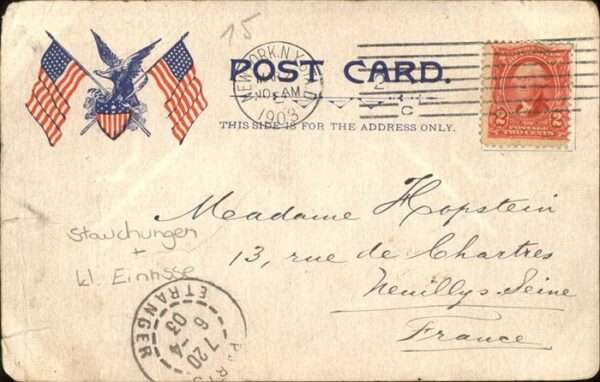 15
POST CARD.
NEW YORK, N.Y.
AM
1903
C
THIS SIDE IS FOR THE ADDRESS ONLY.
2 2
POSTAGE
TWO CENTS
Madame Hopstein
13, rue de Chartres
Neuilly s. Seine
France
Stauchungen
+
kl. Einrisse
ETRANGER
7 20
6 - 4
03
PARIS